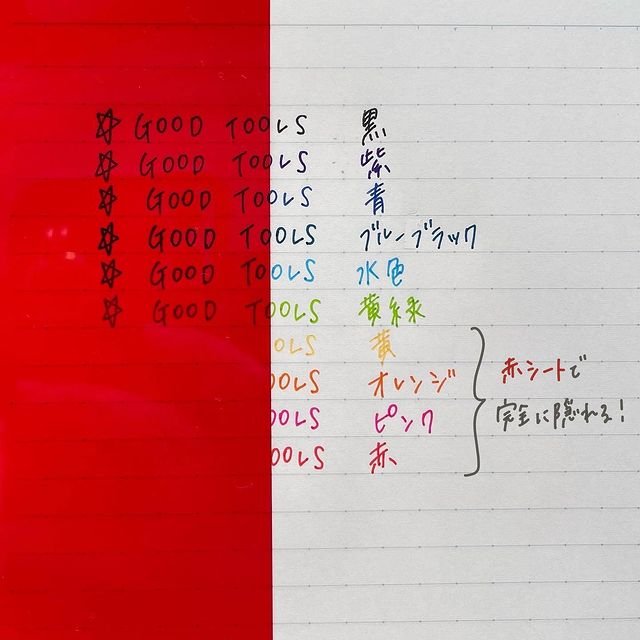 ☆ GOOD TOOLS 黒
☆ GOOD TOOLS 紫
☆ GOOD TOOLS 青
☆ GOOD TOOLS ブルーブラック
☆ GOOD TOOLS 水色
☆ GOOD TOOLS 黄緑
OLS 黄
OOLS オレンジ
OOLS ピンク
OOLS 赤
赤シートで
完全に隠れる!